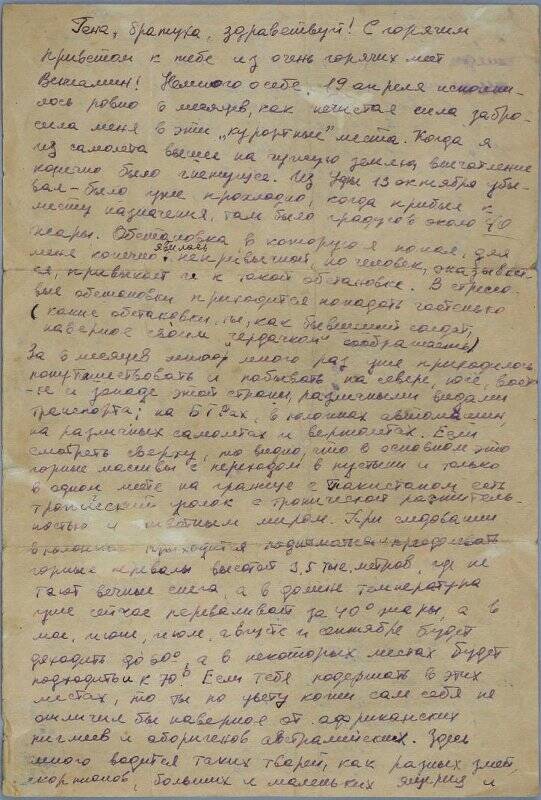 Гена, братуха, здравствуй! С горячим
приветом к тебе из очень горячих мест
Вениамин! Немного о себе. 19 апреля исполни-
лось ровно 6 месяцев, как нечистая сила забро-
сила меня в эти „курортные" места. Когда я
из самолета вышел на чужую землю, впечатление
конечно было гнетущее. Из Уфы 13 октября убы-
вал – было уже прохладно, когда прибыл к
месту назначения, там было градусов около 40
жары. Обстановка в которую я попал, для
меня конечно явилась непривычной, но человек, оказывает-
ся, привыкает и к такой обстановке. В стрессо-
вые обстановки приходится попадать частенько
(какие обстановки ты, как бывший солдат,
наверное своим „чердачком" сообразишь)
За 6 месяцев много раз уже приходилось
попутешествовать и побывать на севере, юге, восто-
ке и западе этой страны, различными видами
транспорта; на БТРах, в колоннах автомашин,
на различных самолетах и вертолетах. Если
смотреть сверху, то видно, что в основном это
горные массивы с переходом в пустыни и только
в одном месте на границе с Пакистаном есть
тропический уголок с тропической раститель-
ностью и животным миром. При следовании
в колоннах приходится преодолевать
горные перевалы высотой 3,5 тыс. метров, где не
тают вечные снега, а в долине температура
уже сейчас переваливает за 40° жары, а в
мае, июне, июле, августе и сентябре будет
доходить до 60°, а в некоторых местах будет
подходить и к 70°. Если тебя подержать в этих
местах, то ты по цвету кожи сам себя не
отличил бы наверное от африканских
пигмеев и аборигенов австралийских. Здесь
много водится таких тварей, как разных змей,
скорпионов, больших и маленьких ящериц и